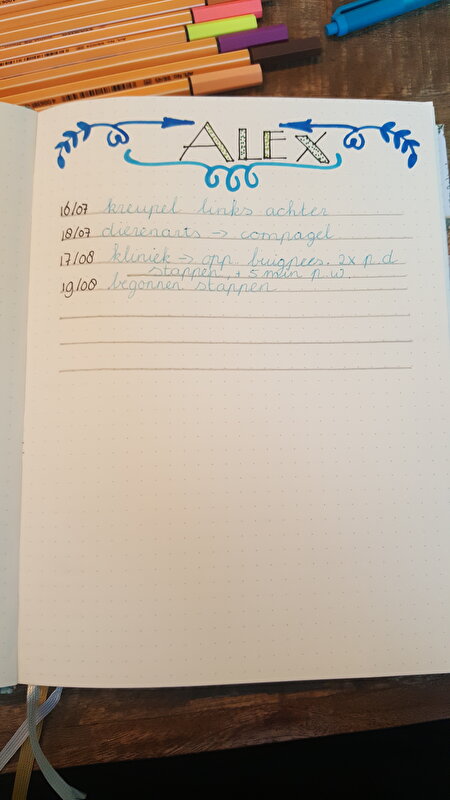 ALEX
16/07 kreupel links achter
18/07 dierenarts → compagel
17/08 kliniek → opp. buigpees. 2x p.d
stappen, + 5 min p.w.
19/08 begonnen stappen